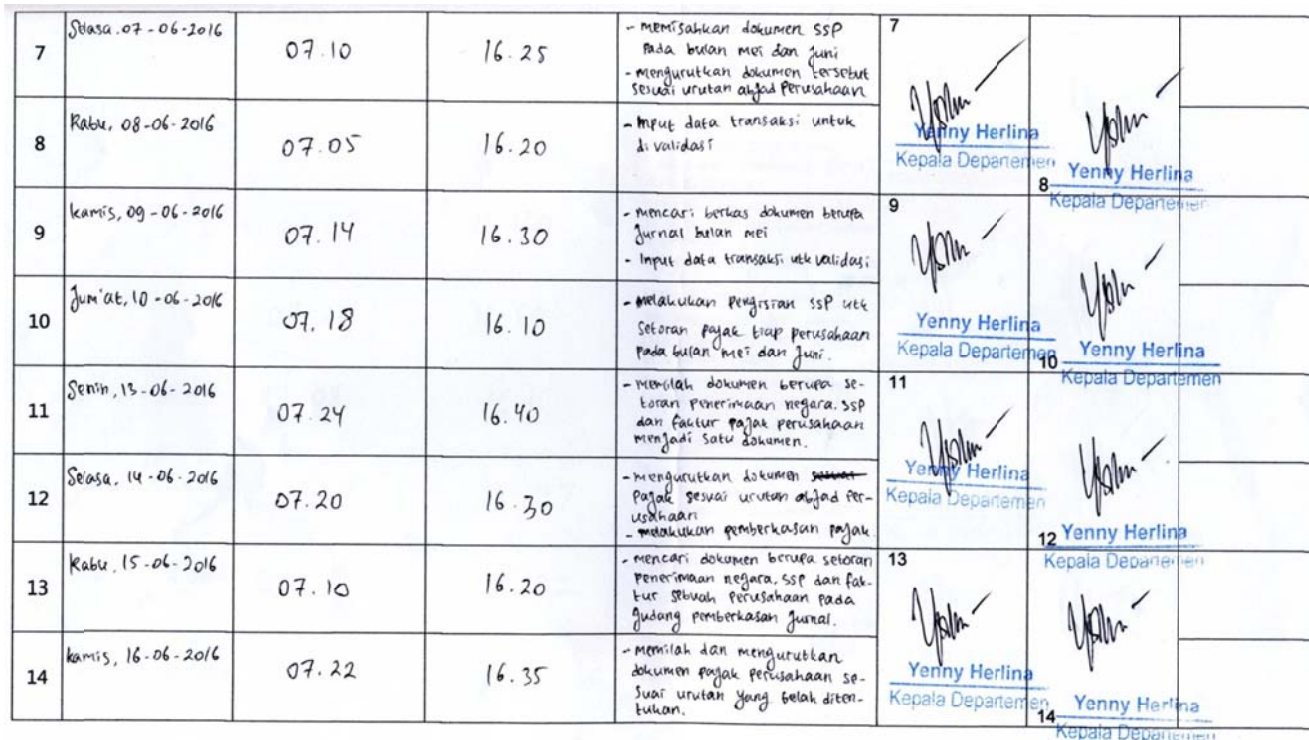 7
Selasa. 07-06-2016
07.10
16.25
- memisahkan dokumen SSP
pada bulan mei dan juni
- mengurutkan dokumen tersebut
sesuai urutan abjad perusahaan
7
Yenny Herlina
Kepala Departemen
8
Rabu, 08-06-2016
07.05
16.20
- Input data transaksi untuk
di validasi
8
Yenny Herlina
Kepala Departemen
9
kamis, 09-06-2016
07.14
16.30
- mencari berkas dokumen berupa
Jurnal bulan mei
- Input data transaksi utk validasi
9
Yenny Herlina
Kepala Departemen
10
Jum'at, 10-06-2016
07.18
16.10
- melakukan pengisian SSP utk
Setoran pajak tiap perusahaan
pada bulan mei dan Juni.
10
Yenny Herlina
Kepala Departemen
11
Senin, 13-06-2016
07.24
16.40
- memilah dokumen berupa se-
toran penerimaan negara. SSP
dan faktur pajak perusahaan
menjadi satu dokumen.
11
Yenny Herlina
Kepala Departemen
12
Selasa, 14-06-2016
07.20
16.30
- mengurutkan dokumen sesuai
pajak sesuai urutan abjad per-
usahaan
- melakukan pemberkasan pajak.
12
Yenny Herlina
Kepala Departemen
13
Rabu, 15-06-2016
07.10
16.20
- mencari dokumen berupa setoran
penerimaan negara, SSP dan fak-
tur sebuah perusahaan pada
gudang pemberkasan jurnal.
13
Yenny Herlina
Kepala Departemen
14
kamis, 16-06-2016
07.22
16.35
- memilah dan mengurutkan
dokumen pajak perusahaan se-
suai urutan yang telah diten-
tukan.
14
Yenny Herlina
Kepala Departemen